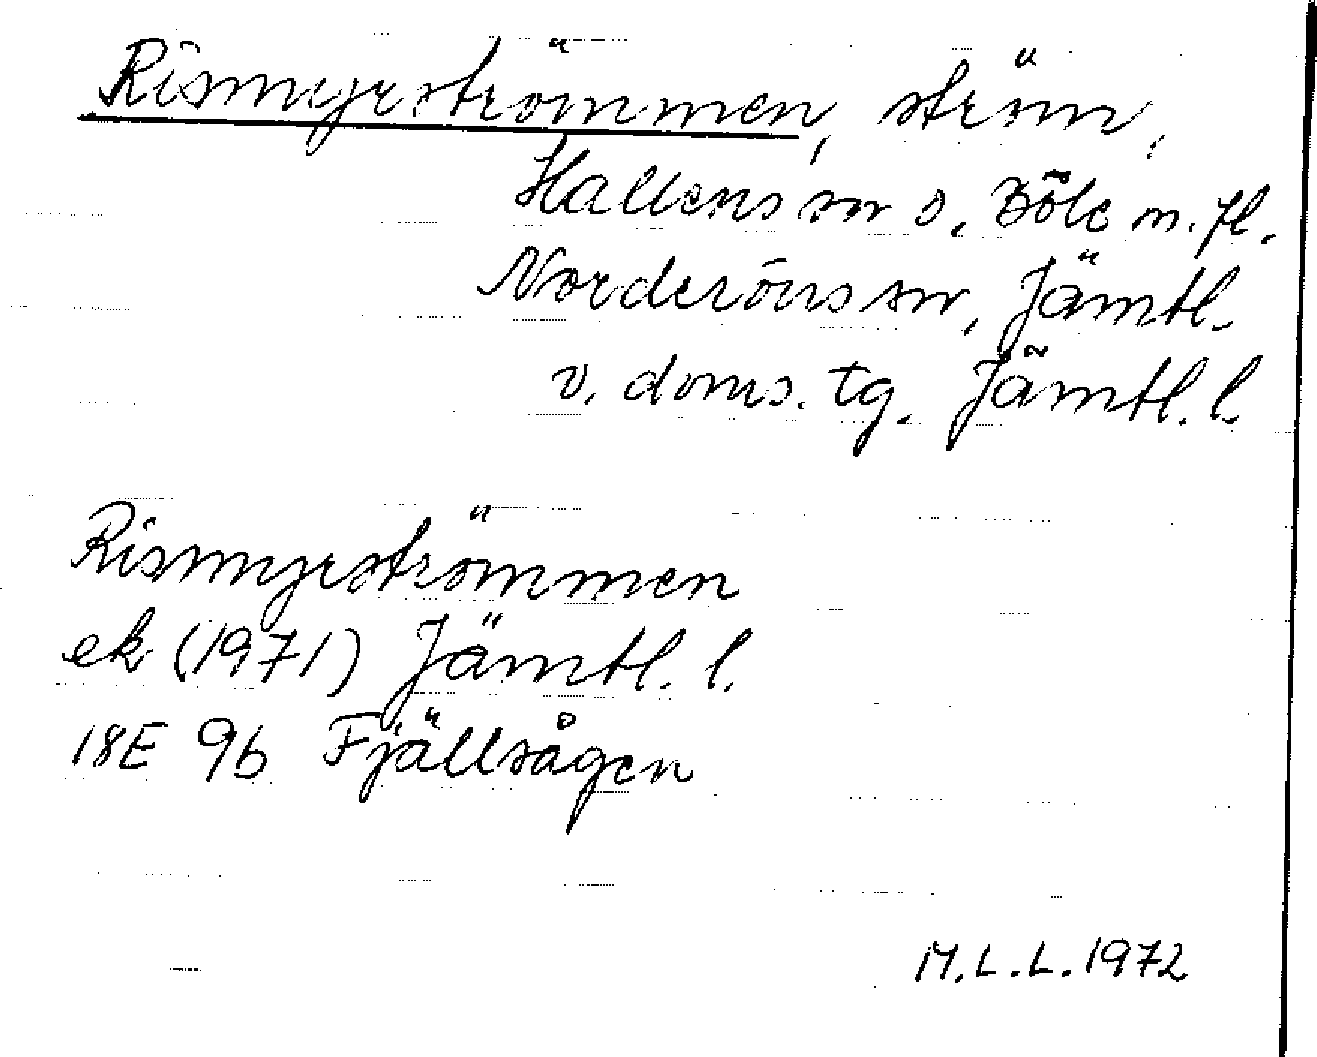 Rismyrströmmen, ström,
Hallens sn o. Böle m. fl.
Norderöns sn, Jämtl.
v. doms. tg. Jämtl. l.
Rismyrströmmen
ek (1971) Jämtl. l.
18E 9b Fjällsågen
M.L.L. 1972